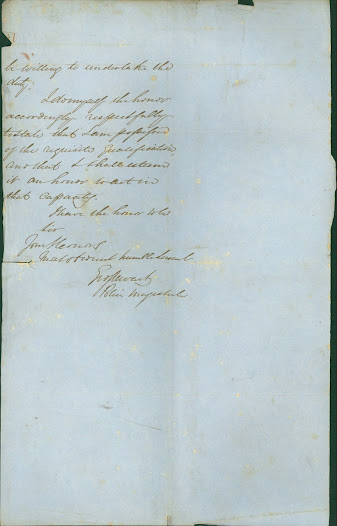 be willing to undertake the
duty.
I do myself the honor
accordingly respectfully
to state that I am possessed
of the requisite qualification,
and that I shall esteem
it an honor to act in
that capacity.
I have the honor to be
Sir
Your
Most obedient humble Servant
Police Magistrate